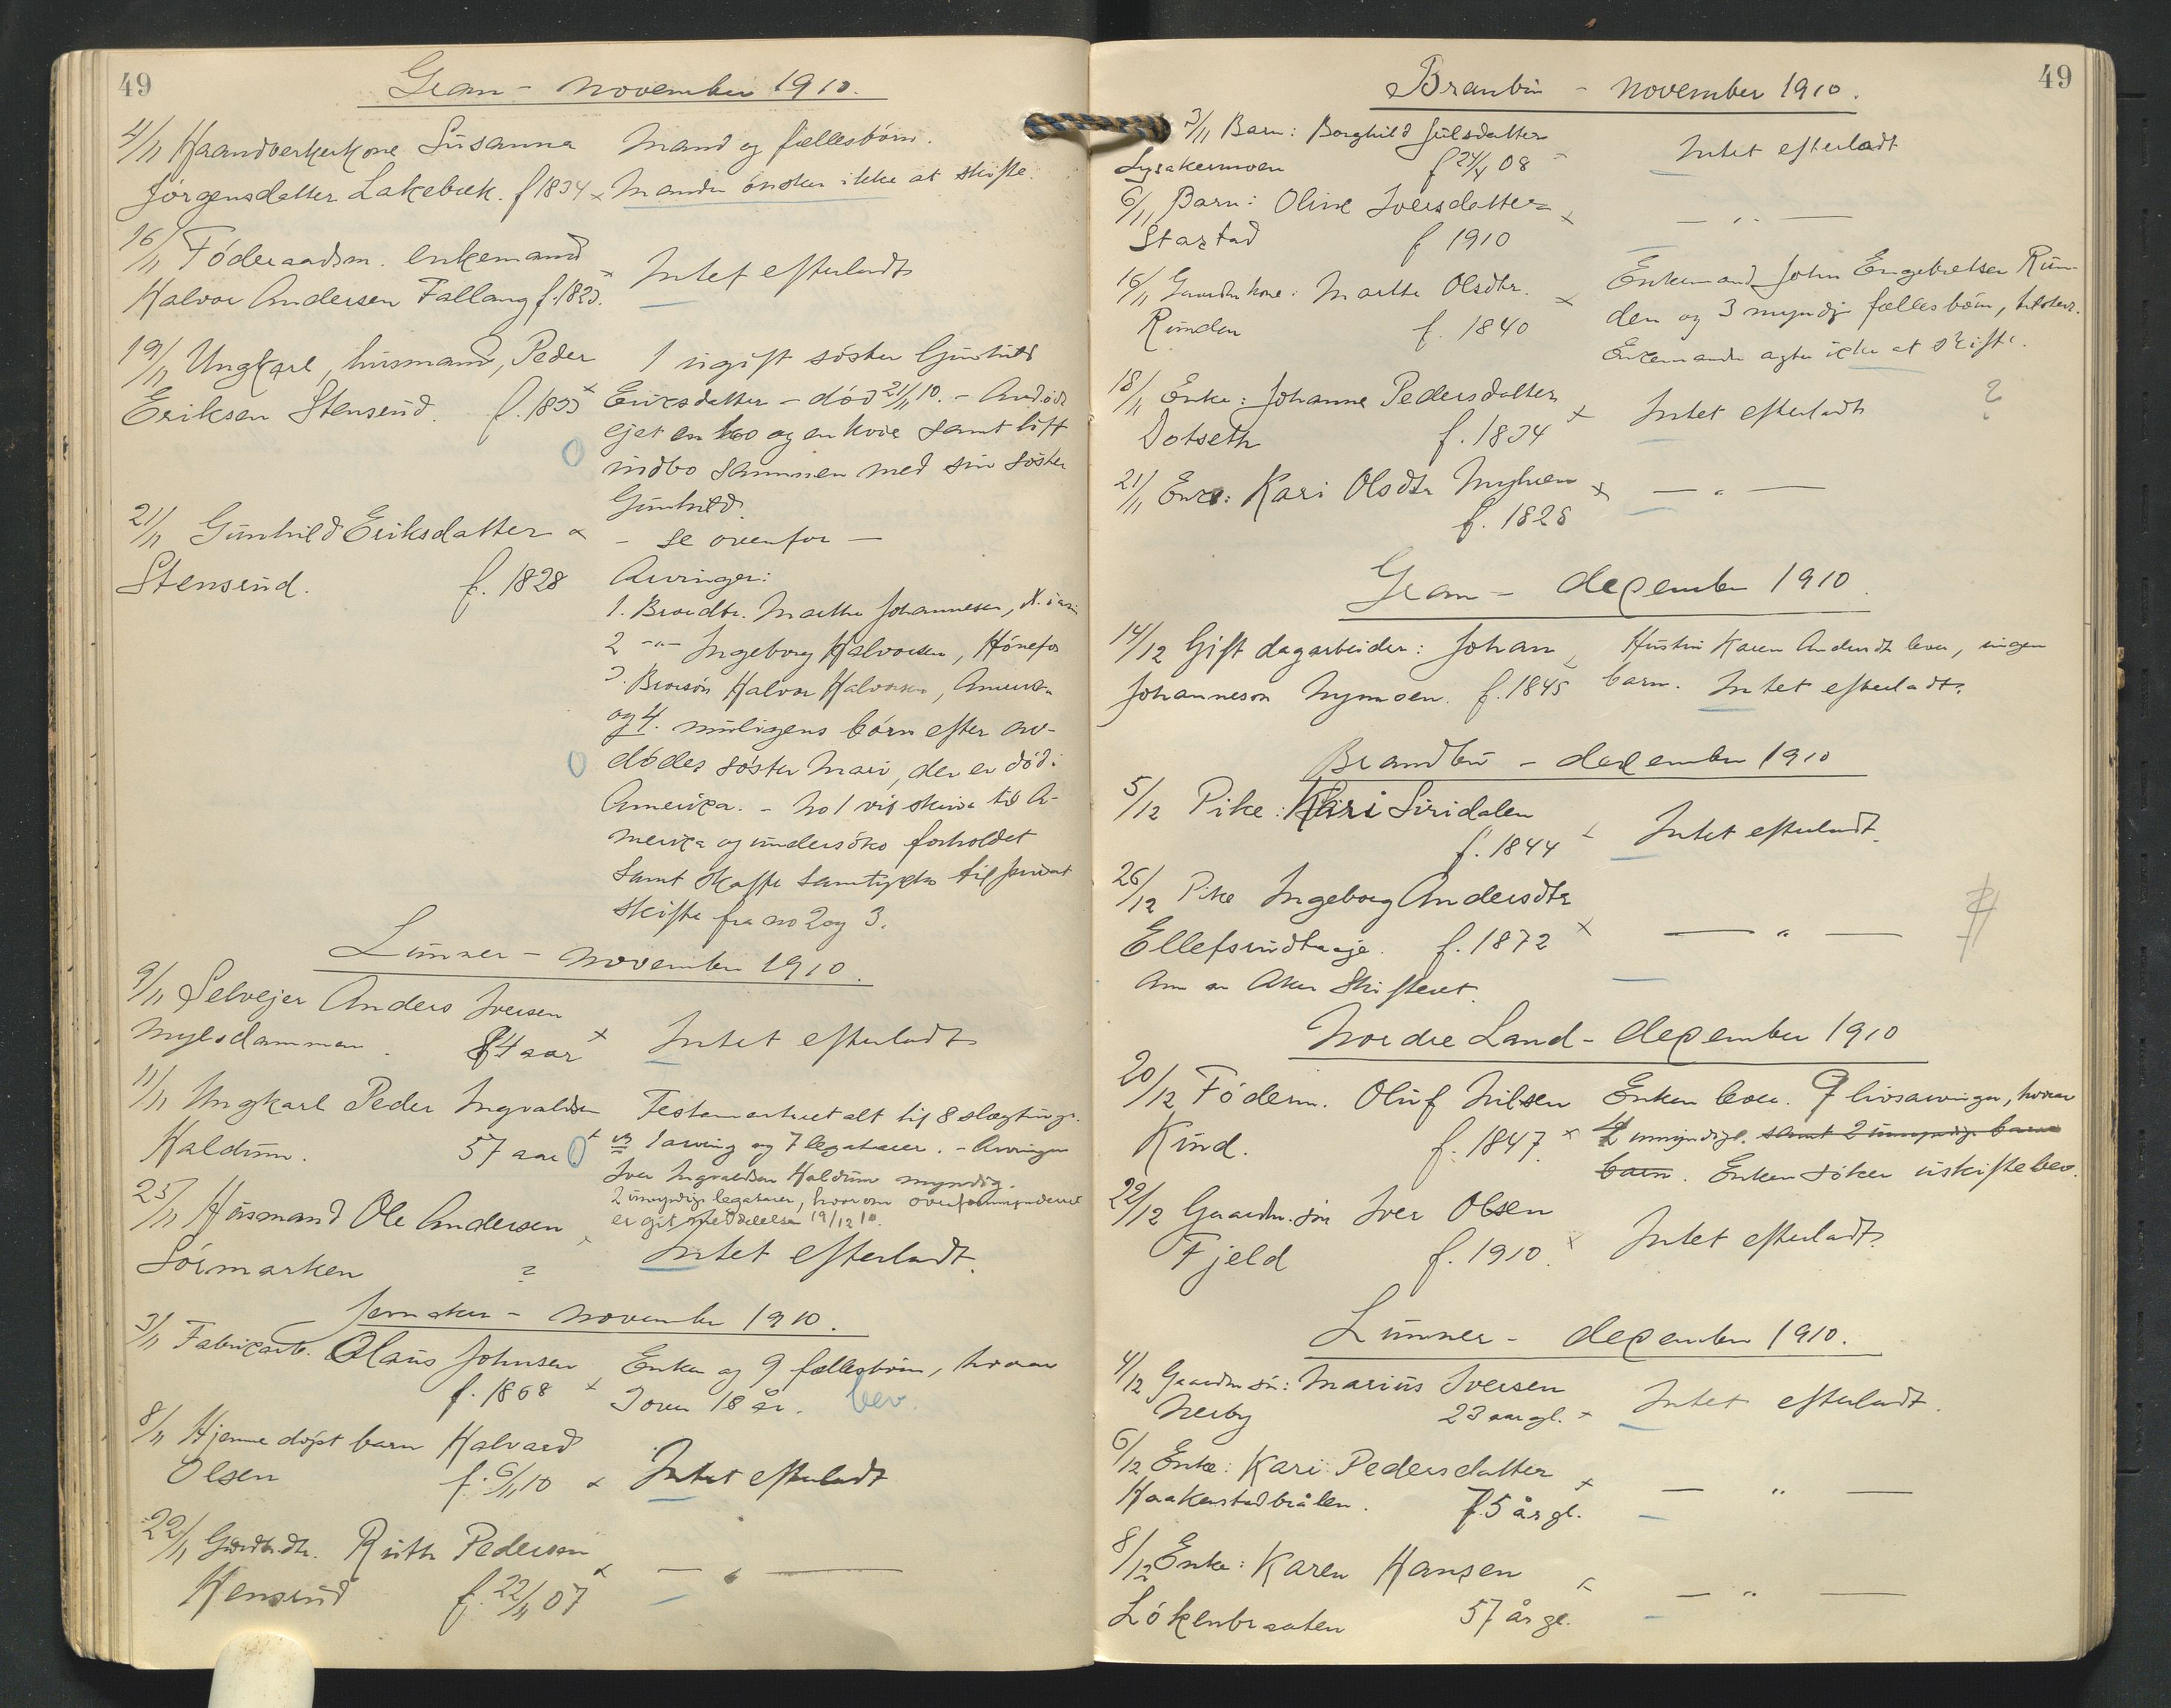 49
Gran - november 1910.
4/11 Haandverkerkone Susanna
Jörgensdatter Lakebæk. f 1834 x
Mand og fællesbörn.
Manden önsker ikke at skifte.
16/11 Föderaadsm. enkemand
Halvor Andersen Fallang f. 1825. x
Intet efterladt
19/11 Ungkarl, husmand, Peder
Eriksen Stensrud. f. 1835 x
1 ugift söster Gunhild
Eriksdatter - död 21/11 10. - Avdöde
ejet en ko og en kvie samt litt
indbo sammen med sin söster
Gunhild.
21/11 Gunhild Eriksdatter x
Stensrud. f. 1828
- se ovenfor -
Arvinger:
1. Brordtr. Marthe Johannesen,
2 -"- Ingeborg Halvorsen, Hönefos
3. Brorsön Halvor Halvorsen, Amerika
og 4. muligens börn efter av-
dödes söster Mari, der er död i
Amerika. - No 1 vil skrive til A-
merika og undersöke forholdet
samt skaffe samtykke til privat
skifte fra no 2 og 3.
Lunner - november 1910.
9/11 Selvejer Anders Iversen
Mylsdammen. 84 aar x
Intet efterladt
11/11 Ungkarl Peder Ingvaldsen
Haldum. 57 aar x
Testamentert alt til 8 slægtninge.
1 arving og 7 legatarer. - Arvingen
Iver Ingvaldsen Haldum myndig.
2 umyndige legatarer, hvorom overformynderiet
er git meddelelse 19/12 10.
25/11 Husmand Ole Andersen x
Sörmarken ?
Intet efterladt.
Jevnaker - november 1910.
3/11 Fabrikarb. Olaus Johnsen
f. 1868 x
Enke og 9 fællesbörn, hvorav
3 over 18 år. bev.
8/11 Hjemmedöpt barn Halvard
Olsen f. 6/11 10 x
Intet efterladt
22/11 Gaardbr.dtr. Ruth Pedersen
Hensrud f. 22/11 07 x
— " —
49
Brandbu - november 1910.
3/11 Barn: Borghild Julsdatter
Lysakermoen f 24/4 08 -
Intet efterladt
6/11 Barn: Oline Iversdatter x
Stastad f 1910
— " —
16/11 Gaardm.kone: Marthe Olsdtr. x
Runden f. 1840
Enkemand John Engebretsen Run-
den og 3 myndige fællesbörn, tilstede.
Enkemanden agter ikke at skifte.
18/11 Enke: Johanne Pedersdatter
Dotseth f. 1834 x
Intet efterladt ?
21/11 Enke: Kari Olsdtr Myhren x
f. 1828
— " —
Gran - december 1910.
14/12 Gift dagarbeider: Johan x
Johanneson Nymoen. f. 1845
Hustru Karen Andersdtr lever, ingen
barn. Intet efterladt.
Brandbu - december 1910
5/12 Pike: Kari Siridalen
f. 1844 x
Intet efterladt.
26/12 Pike Ingeborg Andersdtr
Ellefsrudhaage. f. 1872 x
Anm. av Aker Skifteret.
— " —
Nordre Land - december 1910
20/12 Föderm. Oluf Nilsen
Kind. f. 1847. x
Enken lever. 9 livsarvinger, hvorav
2 umyndige. samt 2 umyndige barne
barn. Enken söker uskiftebev.
22/12 Gaardm. sön Iver Olsen
Fjeld f. 1910. x
Intet efterladt.
Lunner - december 1910.
4/12 Gaardm sön: Marius Iversen
Nerby 23 aar gl. x
Intet efterladt.
6/12 Enke: Kari Pedersdatter x
Haakenstadbråten. 75 år gl.
— " —
8/12 Enke: Karen Hansen x
Lökenbraaten 57 år gl.
— " —